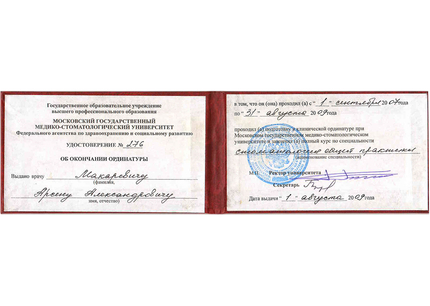 Государственное образовательное учреждение
высшего профессионального образования
МОСКОВСКИЙ ГОСУДАРСТВЕННЫЙ
МЕДИКО-СТОМАТОЛОГИЧЕСКИЙ УНИВЕРСИТЕТ
Федерального агентства по здравоохранению и социальному развитию
УДОСТОВЕРЕНИЕ № 276
ОБ ОКОНЧАНИИ ОРДИНАТУРЫ
Выдано врачу Макаревичу
(фамилия,
Арсену Александровичу
имя, отчество)
в том, что он (она) проходил (а) с - 1 - сентября 2007 года
по - 31 - августа 2009 года
проходил (а) подготовку в клинической ординатуре при
Московском государственном медико-стоматологическом
университете и закончил (а) полный курс по специальности
стоматология общей практики
(наименование специальности)
М.П. Ректор университета
Секретарь
Дата выдачи - 1 - августа 2009